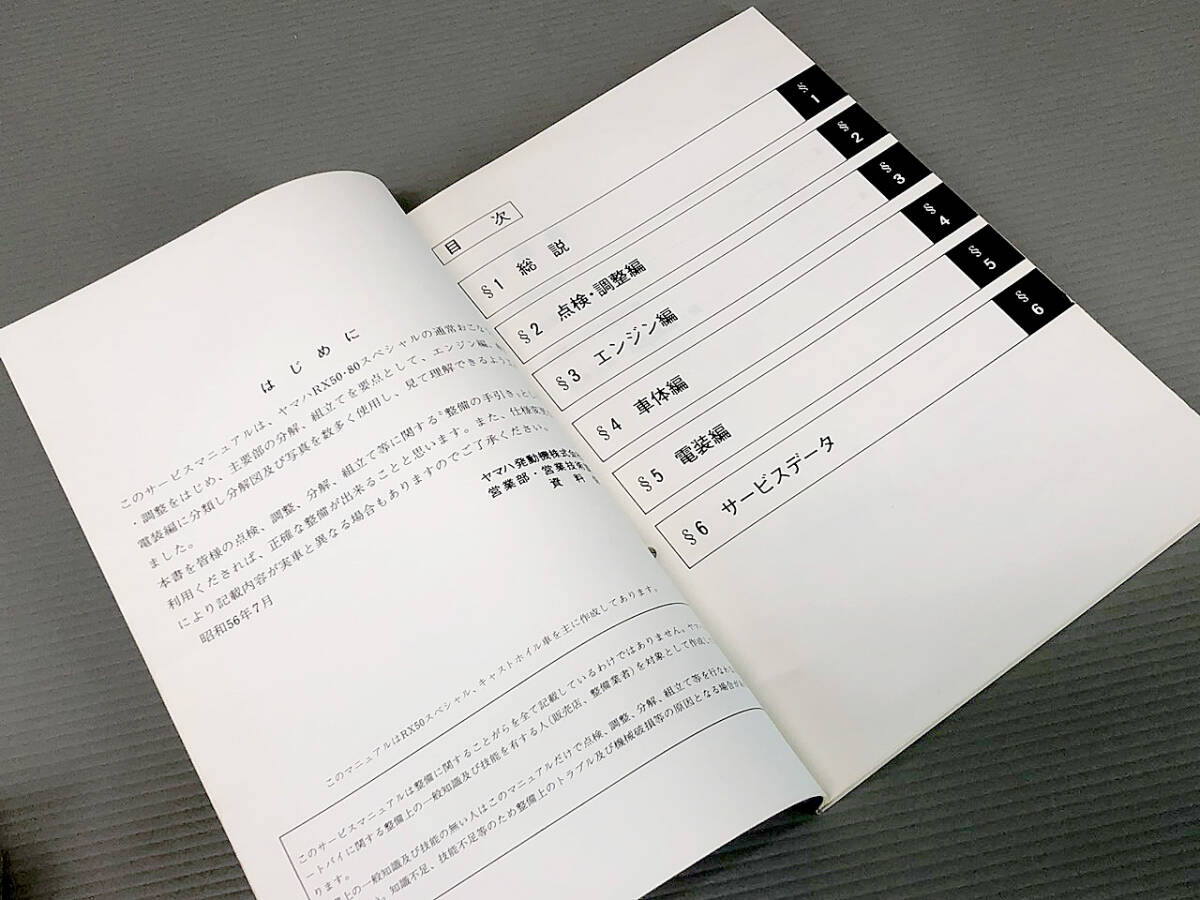 はじめに
このサービスマニュアルは、ヤマハRX50・80スペシャルの通常おこな
・調整をはじめ、主要部の分解、組立てを要点として、エンジン編、
電装編に分類し分解図及び写真を数多く使用し、見て理解できるよう
ました。
本書を皆様の点検、調整、分解、組立て等に関する“整備の手引き”とし
利用くだされば、正確な整備が出来ることと思います。また、仕様変更
により記載内容が実車と異なる場合もありますのでご了承ください。
昭和56年7月
ヤマハ発動機株式会
営業部・営業技術
資料
このマニュアルはRX50スペシャル、キャストホイル車を主に作成してあります。
このサービスマニュアルは整備に関することがらを全て記載しているわけではありません。ヤマ
ートバイに関する整備上の一般知識及び技能を有する人(販売店、整備業者)を対象として作成し
ります。
上の一般知識及び技能の無い人はこのマニュアルだけで点検、調整、分解、組立て等を行なわ
知識不足、技能不足等のため整備上のトラブル及び機械破損等の原因となる場合が
目 次
§1 総 説
§2 点検・調整編
§3 エンジン編
§4 車体編
§5 電装編
§6 サービスデータ
§1
§2
§3
§4
§5
§6